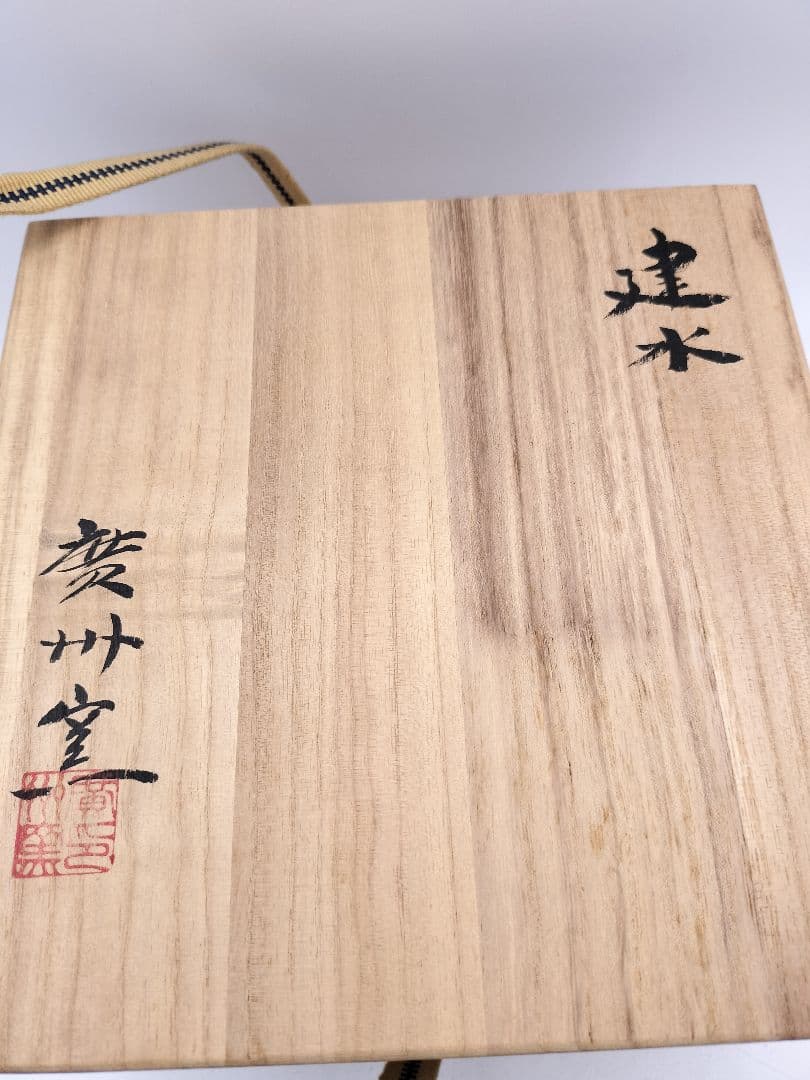 建水
廣州窯